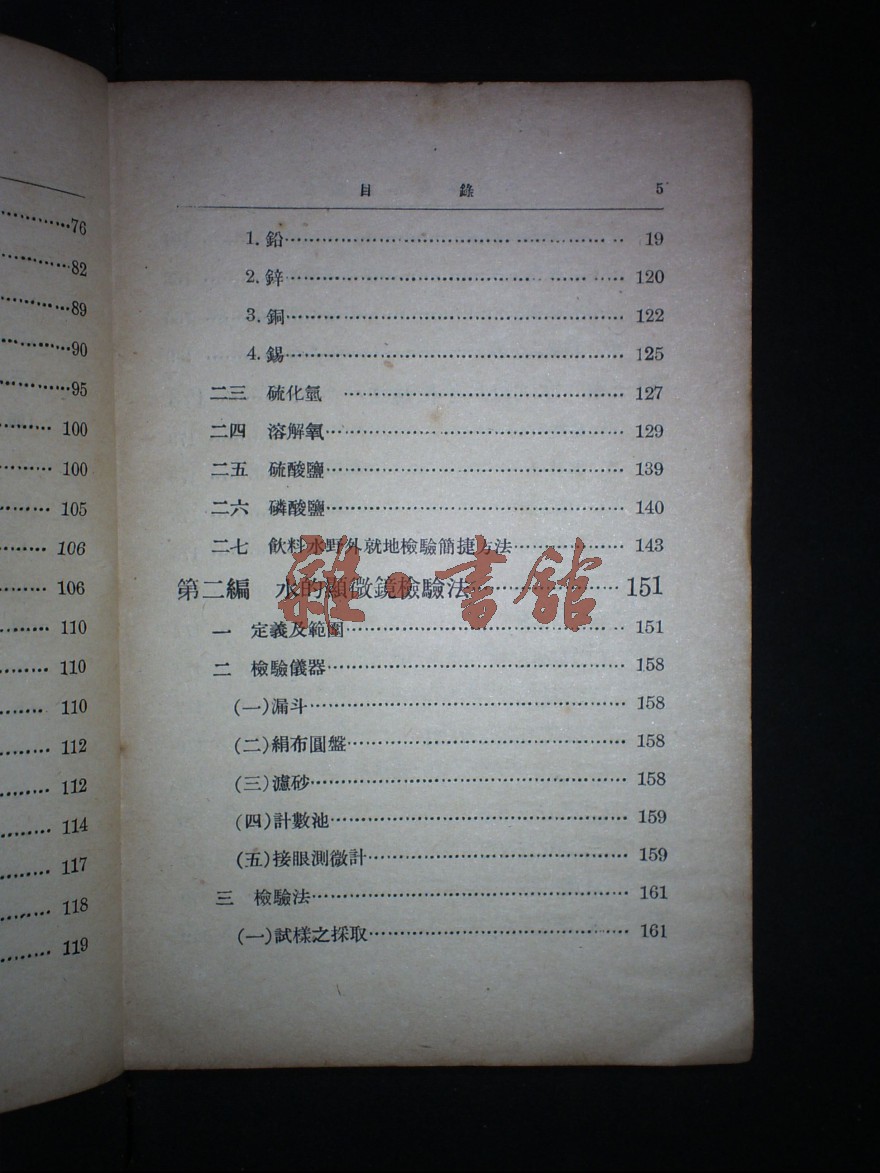 76
82
89
90
95
100
100
105
106
106
110
110
110
112
112
114
117
118
119
目 錄 5
1. 鉛 19
2. 鋅 120
3. 銅 122
4. 錫 125
二三 硫化氫 127
二四 溶解氧 129
二五 硫酸鹽 139
二六 磷酸鹽 140
二七 飲料水野外就地檢驗簡捷方法 143
第二編 水的顯微鏡檢驗法 151
一 定義及範圍 151
二 檢驗儀器 158
(一)漏斗 158
(二)絹布圓盤 158
(三)濾砂 158
(四)計數池 159
(五)接眼測微計 159
三 檢驗法 161
(一)試樣之採取 161
雜·書館